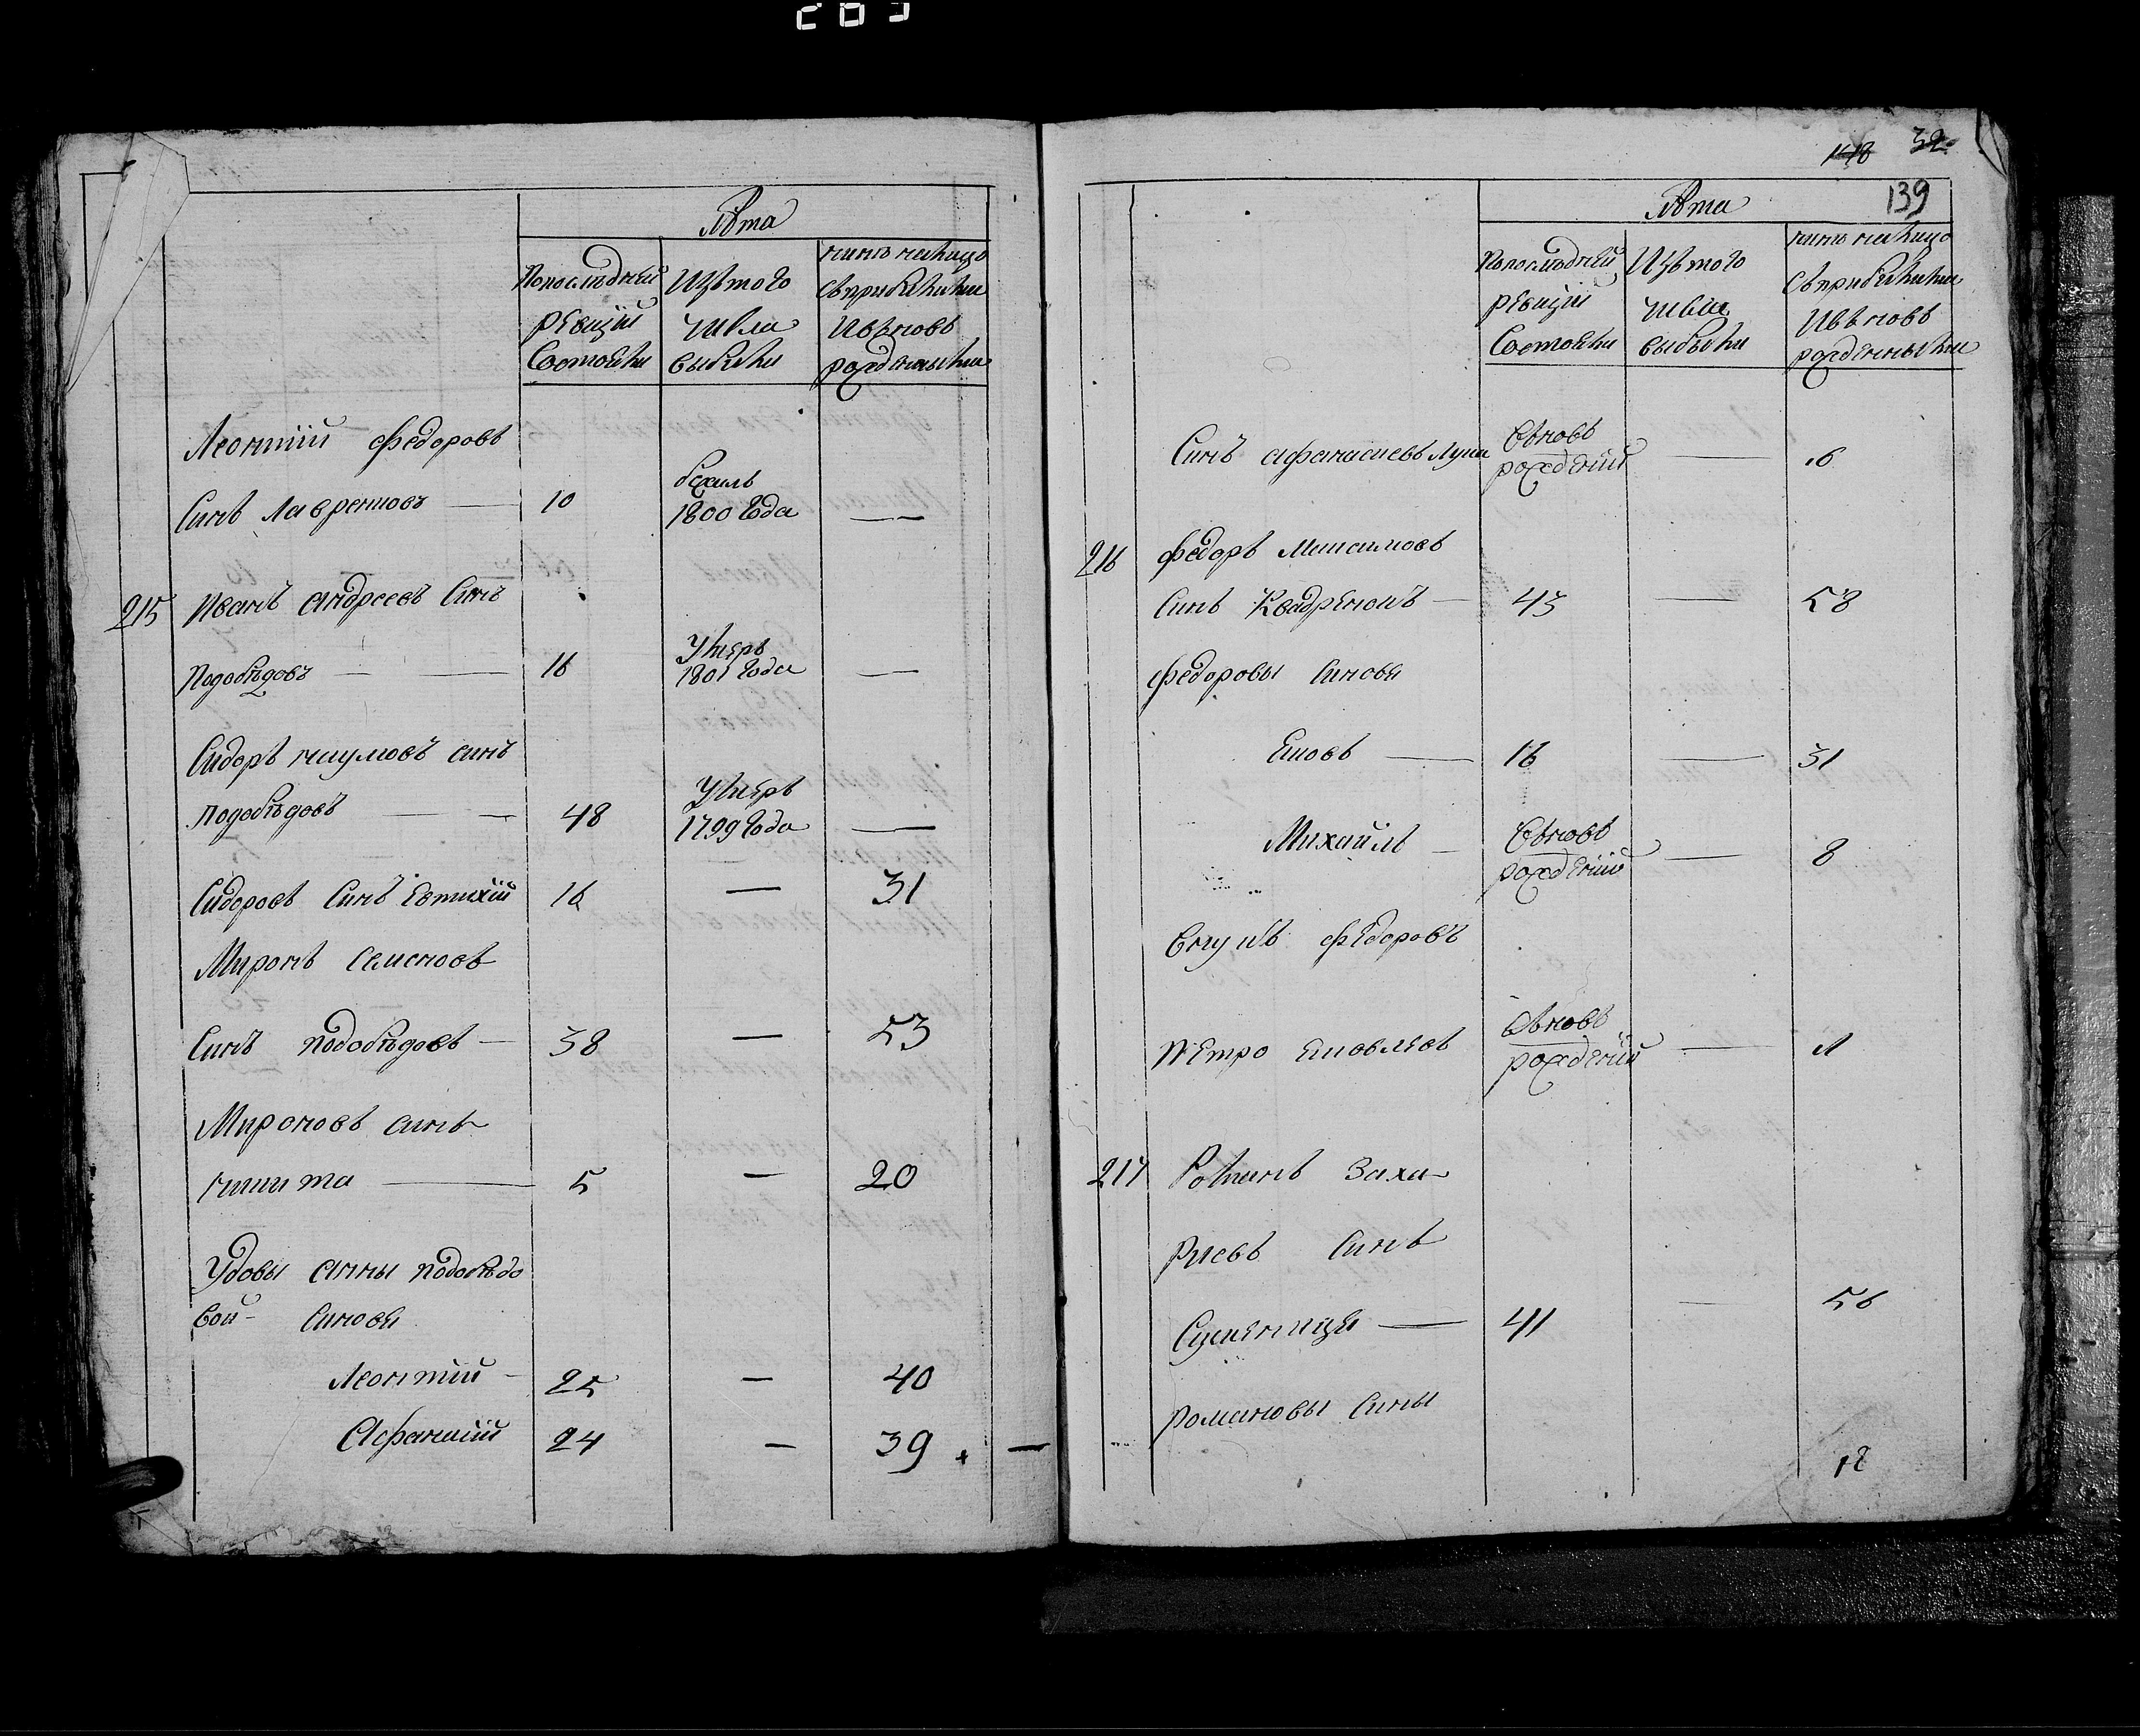 Лѣта
Попослѣдней
ревизіи
состояли
Изъ того
числа
выбыли
ныне налицо
съприбылыми
ивъновь
рожденными
Леонтий Федоровъ
Синъ Лавреновъ — 10
бежалъ
1800 года —
215 Иванъ Андреевъ Синъ
Подобѣдовъ — — 16
Умеръ
1801 года —
Сидоръ наумовъ синъ
подобѣдовъ — — 48
Умеръ
1799 года —
Сидоровъ Синъ Евтихій 16 — 31
Миронъ Семеновъ
Синъ подобѣдовъ — 38 — 53
Мироновъ синъ
никита — 5 — 20
Удовы Анны подобѣдо
вой — Синовя
Леонтий — 25 — 40
Афанасий 24 — 39
32
148
139
Лѣта
Попослѣдней
ревизіи
Состояли
Изъ того
числа
выбыли
нынь налицо
Съприбылыми
Ивъновь
рожденными
Синъ афанасиевъ Лука
Вьновь
рождений — 6
216 Федоръ Максимовъ
Синъ Квадреновъ — 43 — 58
Федоровы Синовя
Яковъ — 16 — 31
Михайлъ —
Вьновь
рождений — 8
Внукъ Федоровъ
Петро Яковлевъ
Вьновь
рождений — 1
217 Романъ Заха-
риевъ Синъ
Сукенница — 41 — 56
Романовы Сины
12